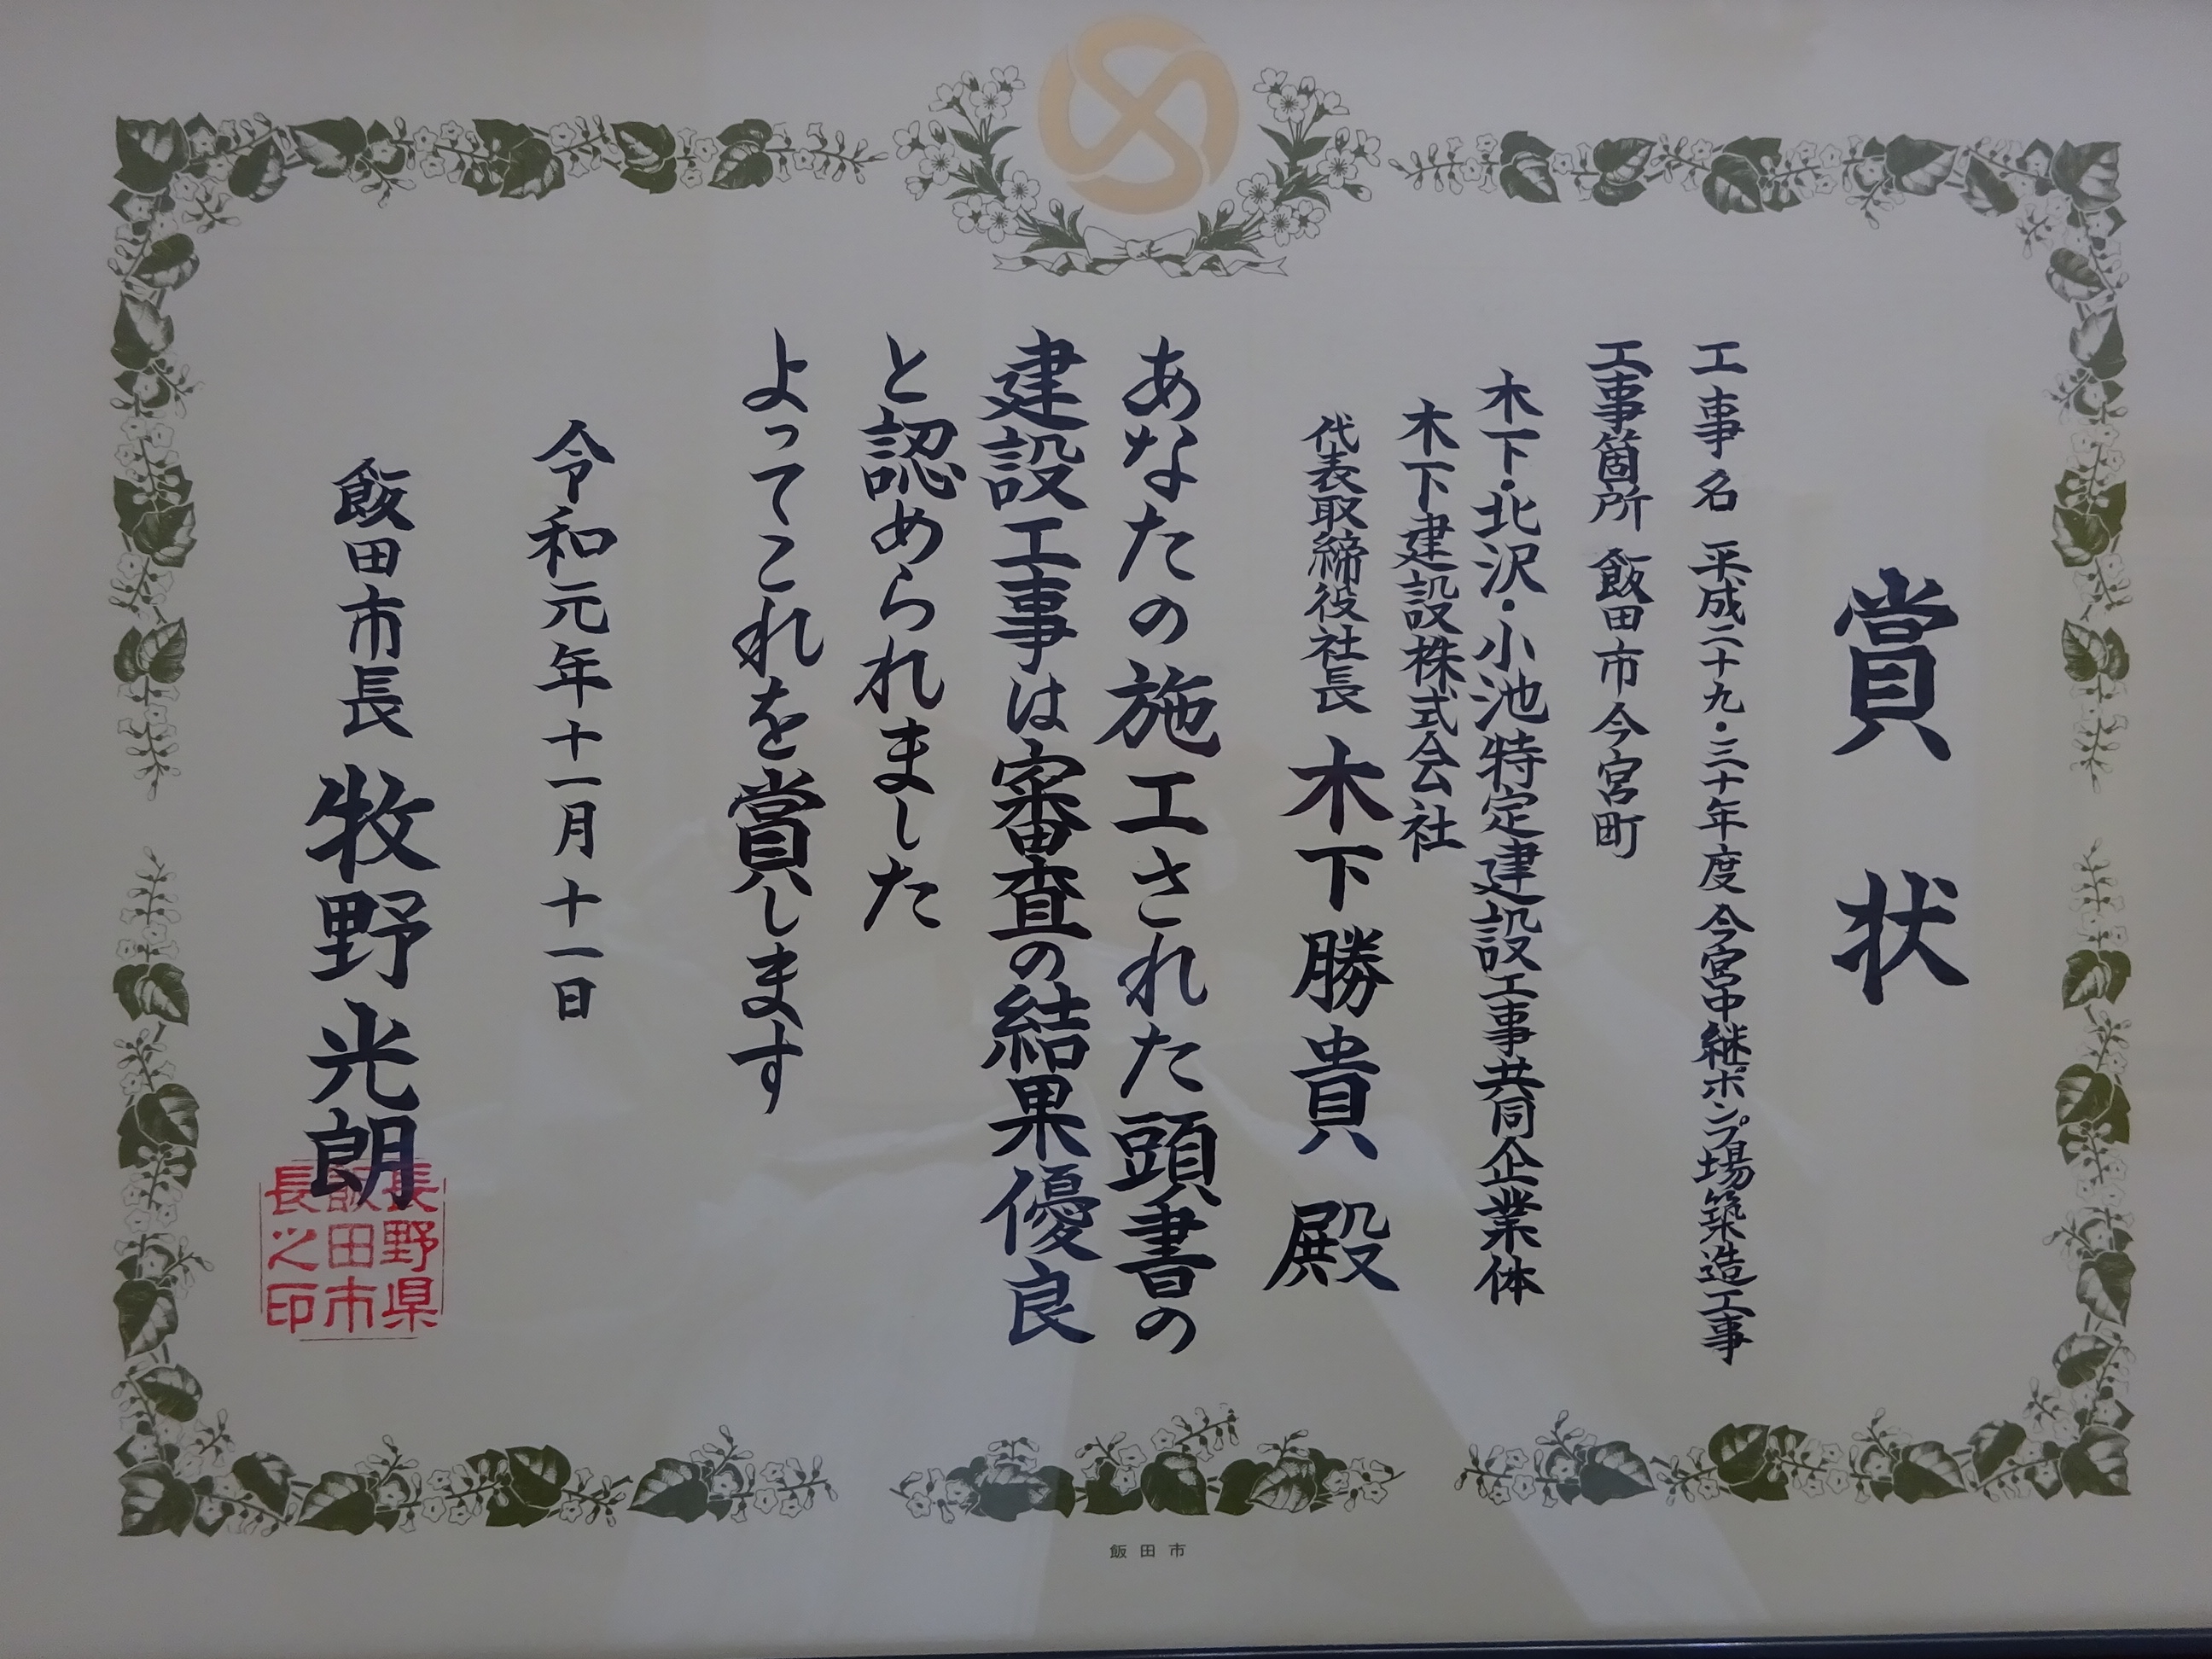 賞状
工事名 平成二十九・三十年度 今宮中継ポンプ場築造工事
工事箇所 飯田市今宮町
木下・北沢・小池特定建設工事共同企業体
木下建設株式会社
代表取締役社長 木下勝貴 殿
あなたの施工された頭書の
建設工事は審査の結果優良
と認められました
よってこれを賞します
令和元年十一月十一日
飯田市長 牧野光朗
長野県
飯田市
長之印
飯田市